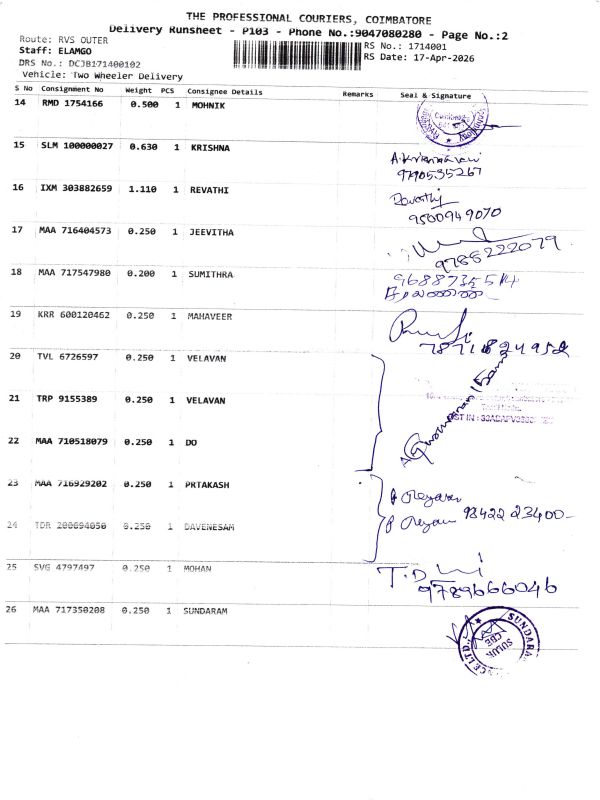 THE PROFESSIONAL COURIERS, COIMBATORE
Delivery Runsheet - P103 - Phone No.:9047080280 - Page No.:2
Route: RVS OUTER
RS No.: 1714001
Staff: ELAMGO
RS Date: 17-Apr-2026
DRS No.: DCJB171400102
Vehicle: Two Wheeler Delivery
S No Consignment No Weight PCS Consignee Details Remarks Seal & Signature
14 RMD 1754166 0.500 1 MOHNIK
15 SLM 100000027 0.630 1 KRISHNA
9790535267
16 IXM 303882659 1.110 1 REVATHI
Revathy
9500949070
17 MAA 716404573 0.250 1 JEEVITHA
9788222079
18 MAA 717547980 0.200 1 SUMITHRA
9688735514
19 KRR 600120462 0.250 1 MAHAVEER
7871824952
20 TVL 6726597 0.250 1 VELAVAN
21 TRP 9155389 0.250 1 VELAVAN
22 MAA 710518079 0.250 1 DO
23 MAA 716929202 0.250 1 PRTAKASH
24 TDR 200694050 0.250 1 DAVENESAM
98422 23400
25 SVG 4797497 0.250 1 MOHAN
9789666046
26 MAA 717350208 0.250 1 SUNDARAM
SUNDARAM
SULUR
CBE